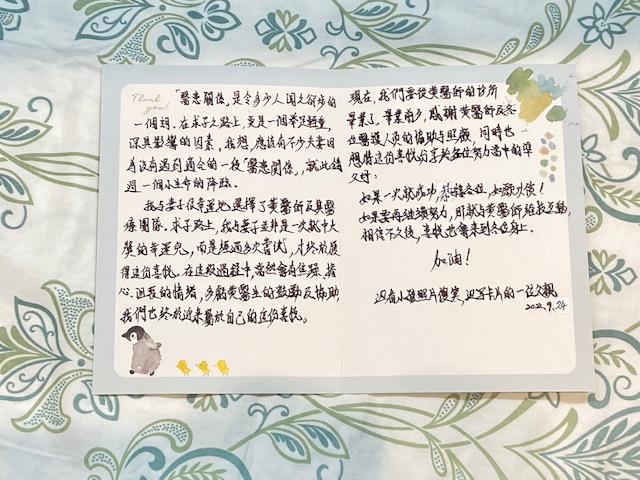 Thank you!
「醫患關係」是令多少人聞之卻步的
一個詞。在求子之路上，更是一個舉足輕重，
深具影響的因素。我想，應該有不少夫妻因
為沒有遇到適合的一段「醫患關係」，就此錯
過一個小生命的降臨。
我與妻子很幸運地選擇了黃醫師及其醫
療團隊。求子路上，我與妻子並非是一次就中大
獎的幸運兒，而是經過多次嘗試，才終於獲
得這份喜悅。在這段過程中，當然會有焦躁、擔
心、沮喪的情緒，多虧黃醫生的鼓勵及協助，
我們也終於迎來屬於自己的這份喜悅。
現在，我們要從黃醫師的診所
畢業了，畢業前夕，感謝黃醫師及各
位醫護人員的協助與照顧，同時也
想將這份喜悅分享於各位努力當中的準
父母：
如果一次就成功，恭禧各位，如願以償！
如果要再繼續努力，那就與黃醫師給教互動，
相信不久後，喜悅也會來到各位身上。
加油！
沿看小孩照片傻笑，边写卡片的一位父親
2022.9.24